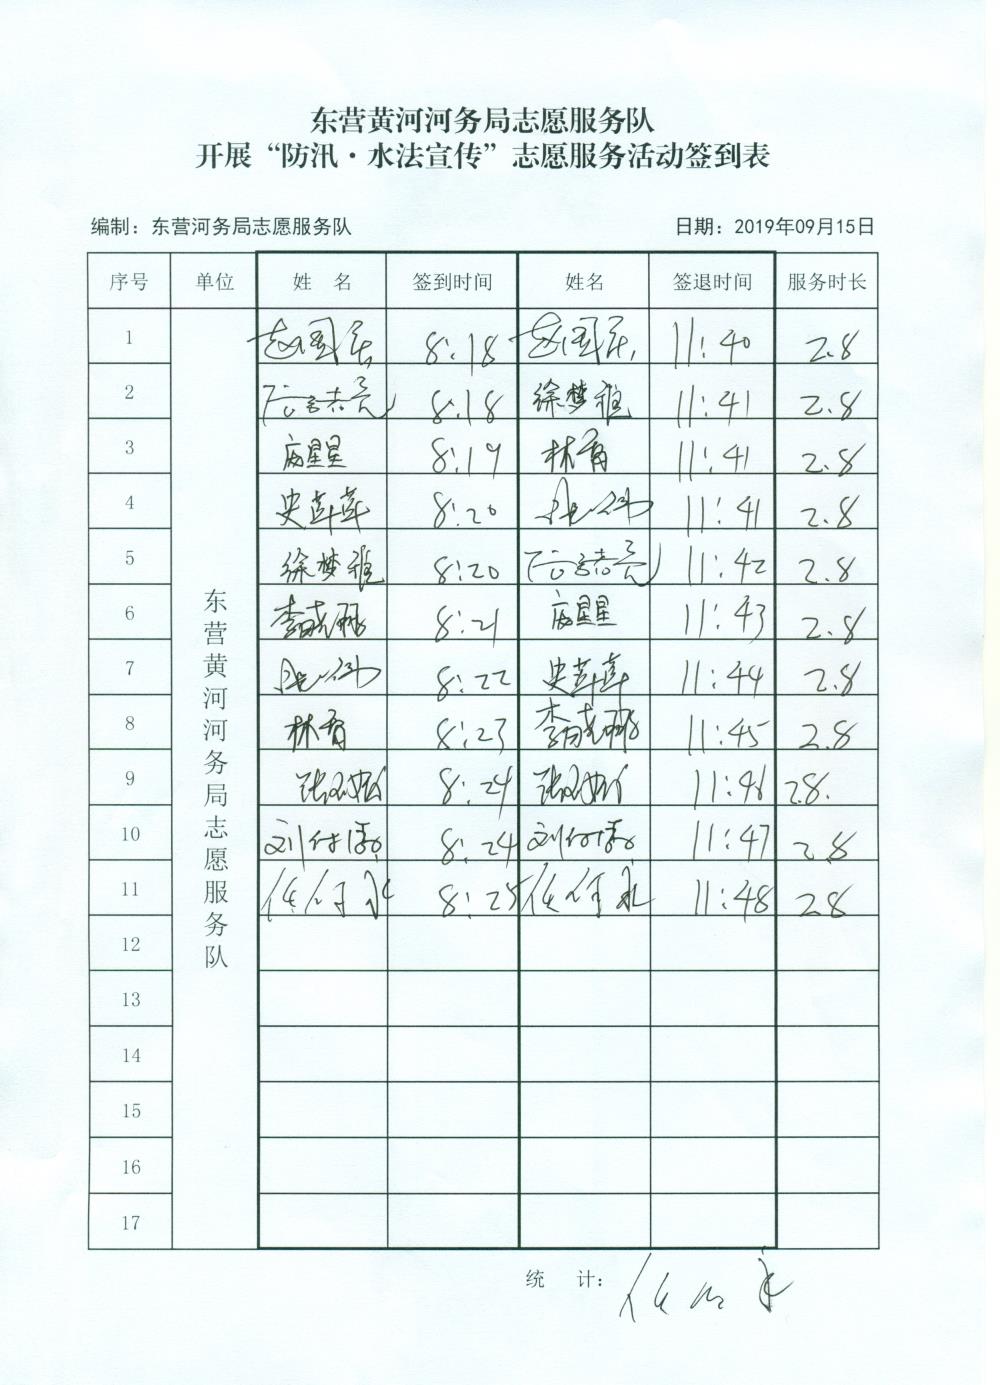 东营黄河河务局志愿服务队
开展“防汛·水法宣传”志愿服务活动签到表
编制：东营河务局志愿服务队 日期：2019年09月15日
序号 单位 姓 名 签到时间 姓名 签退时间 服务时长
东营黄河河务局志愿服务队
1 8:18 11:40 2.8
2 8:18 徐梦雅 11:41 2.8
3 8:19 11:41 2.8
4 史莲莲 8:20 11:41 2.8
5 徐梦雅 8:20 11:42 2.8
6 8:21 11:43 2.8
7 8:22 史莲莲 11:44 2.8
8 8:23 11:45 2.8
9 8:24 11:46 2.8.
10 8:24 11:47 2.8
11 8:25 11:48 2.8
12
13
14
15
16
17
统 计：